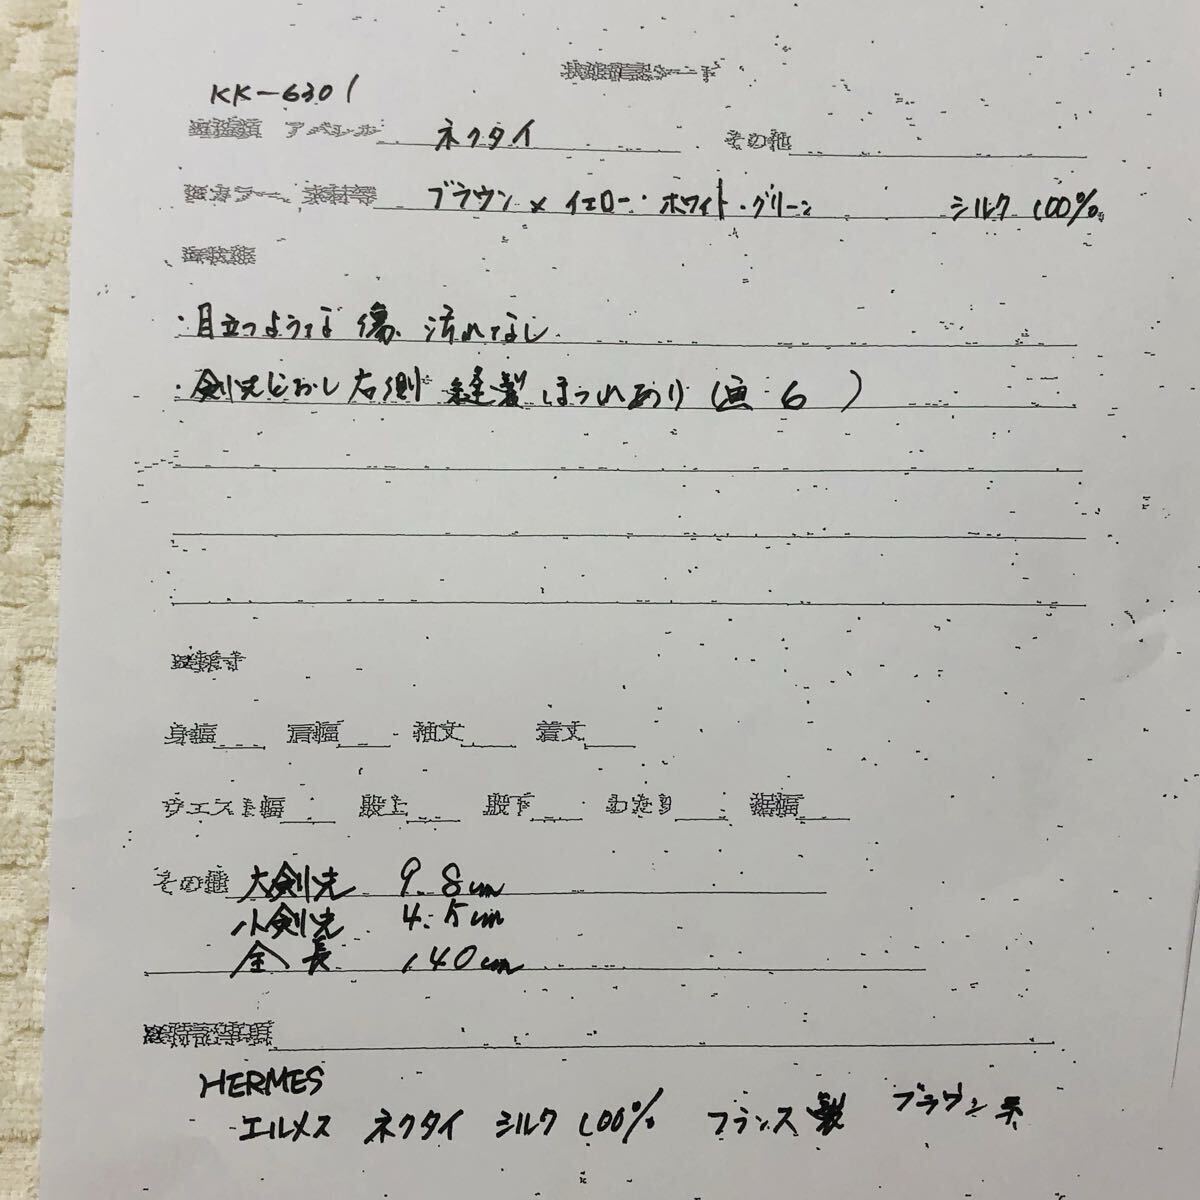 KK-6301
アパレル ネクタイ その他
カラー、素材等 ブラウン × イエロー・ホワイト・グリーン シルク 100%
・目立つような 傷、汚れなし
・剣先 右側 縫製 ほつれあり (画 6 )
身幅 肩幅 袖丈 着丈
ウエスト幅 股上 股下 わたり 裾幅
その他 大剣先 9.8cm
小剣先 4.5cm
全長 140cm
HERMES
エルメス ネクタイ シルク 100% フランス製 ブラウン系